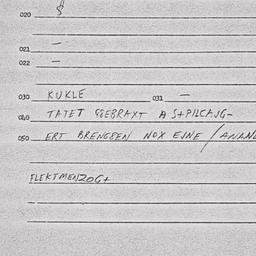 020 8
021 –
022 –
030 KUKLE 031 –
040 TATET GGEBRAXT A S+PILCAJG-
050 ERT BRENGBEN NOX EJNE /
FLEKTMENZOG+